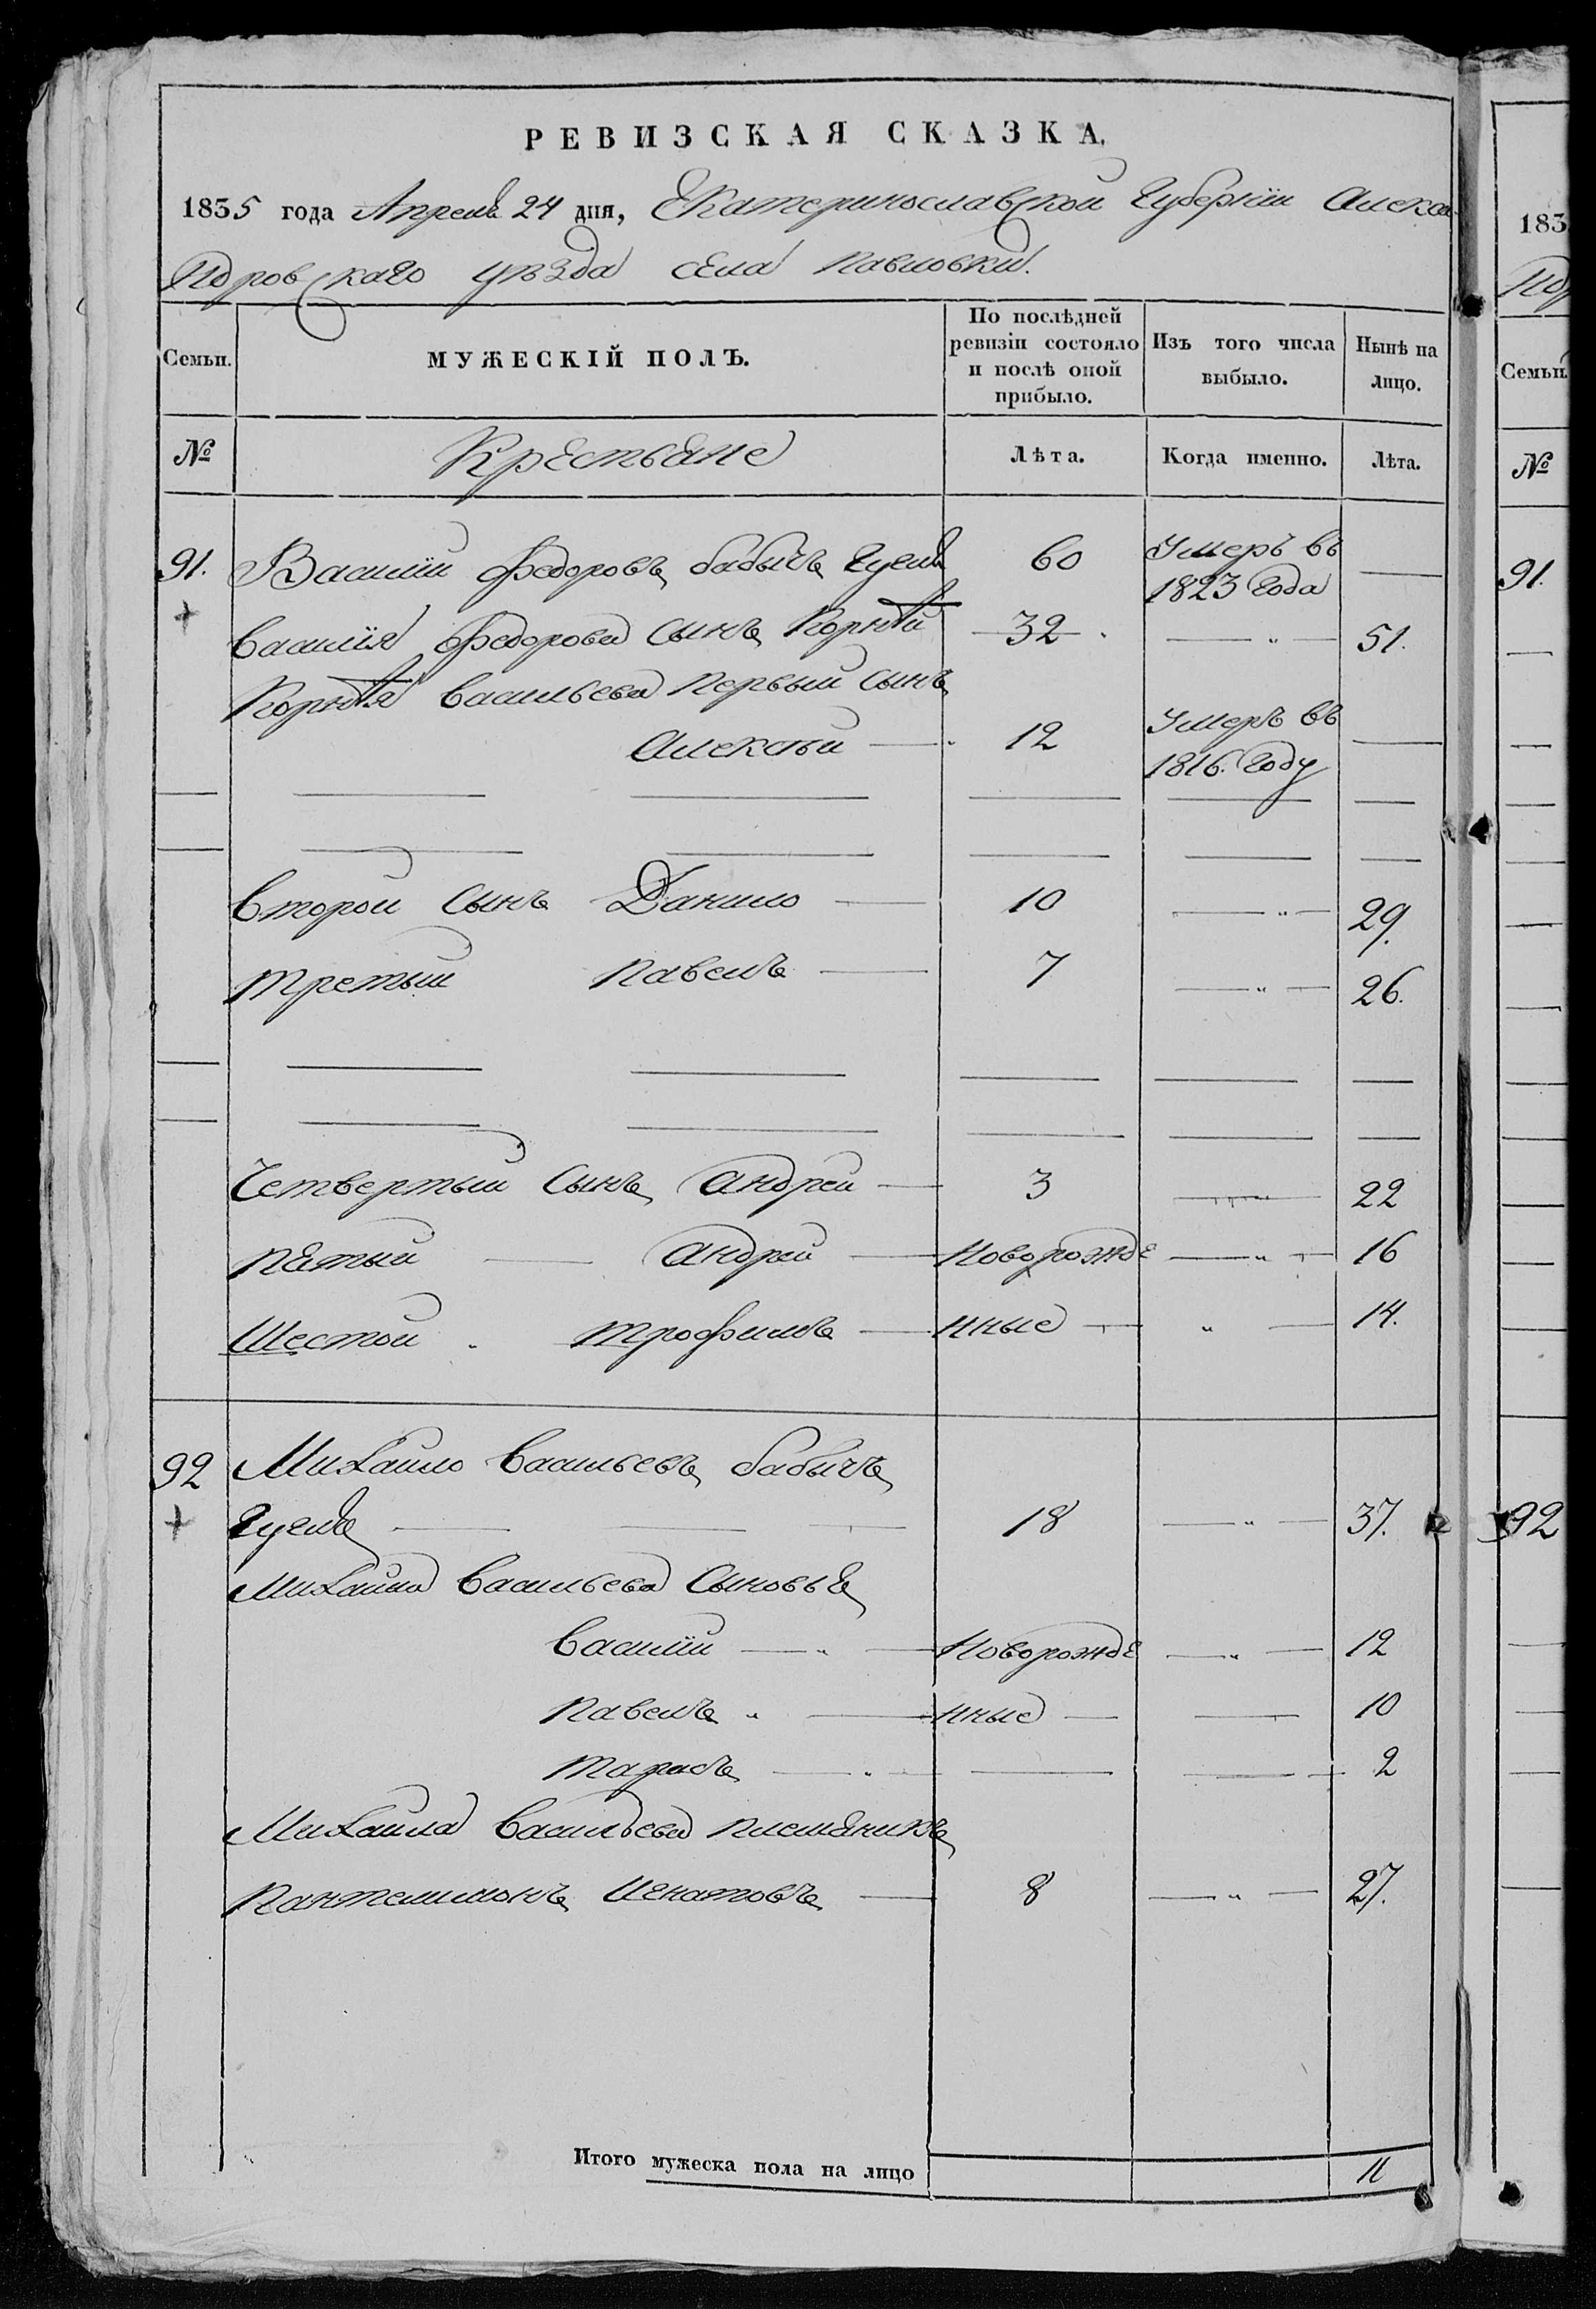 РЕВИЗСКАЯ СКАЗКА.
1835 года Апреля 24 дня, Екатеринославской Губернїи Алекса-
ндровскаго уѣзда села Павловки.
Семьи. МУЖЕСКІЙ ПОЛЪ. По послѣдней ревизіи состояло и послѣ оной прибыло. Изъ того числа выбыло. Нынѣ на лицо.
№ Крестьяне Лѣта. Когда именно. Лѣта.
91. Василїй Федоровъ бабычъ 60 Умеръ въ 1823 года
Василїя Федорова сынъ Корнѣй 32 51.
Корнѣя Васильева первый сынъ
Алексѣй 12 Умеръ въ 1816. году
Второй сынъ Данило 10 29.
третый Павелъ 7 26.
Четвертый сынъ Андрей 3 22
пятый Андрей новорожде 16
Шестой трофимъ нные 14.
92 Михайло Васильевъ бабычъ
18 37.
Михайла Васильева сыновья
Василїй Новорожде 12
Павелъ нные 10
тарасъ 2
Михайла Васильева племяникъ
Пантелимонъ Игнатовъ 8 27.
Итого мужеска пола на лицо 11
183
Семьи
№
91.
92